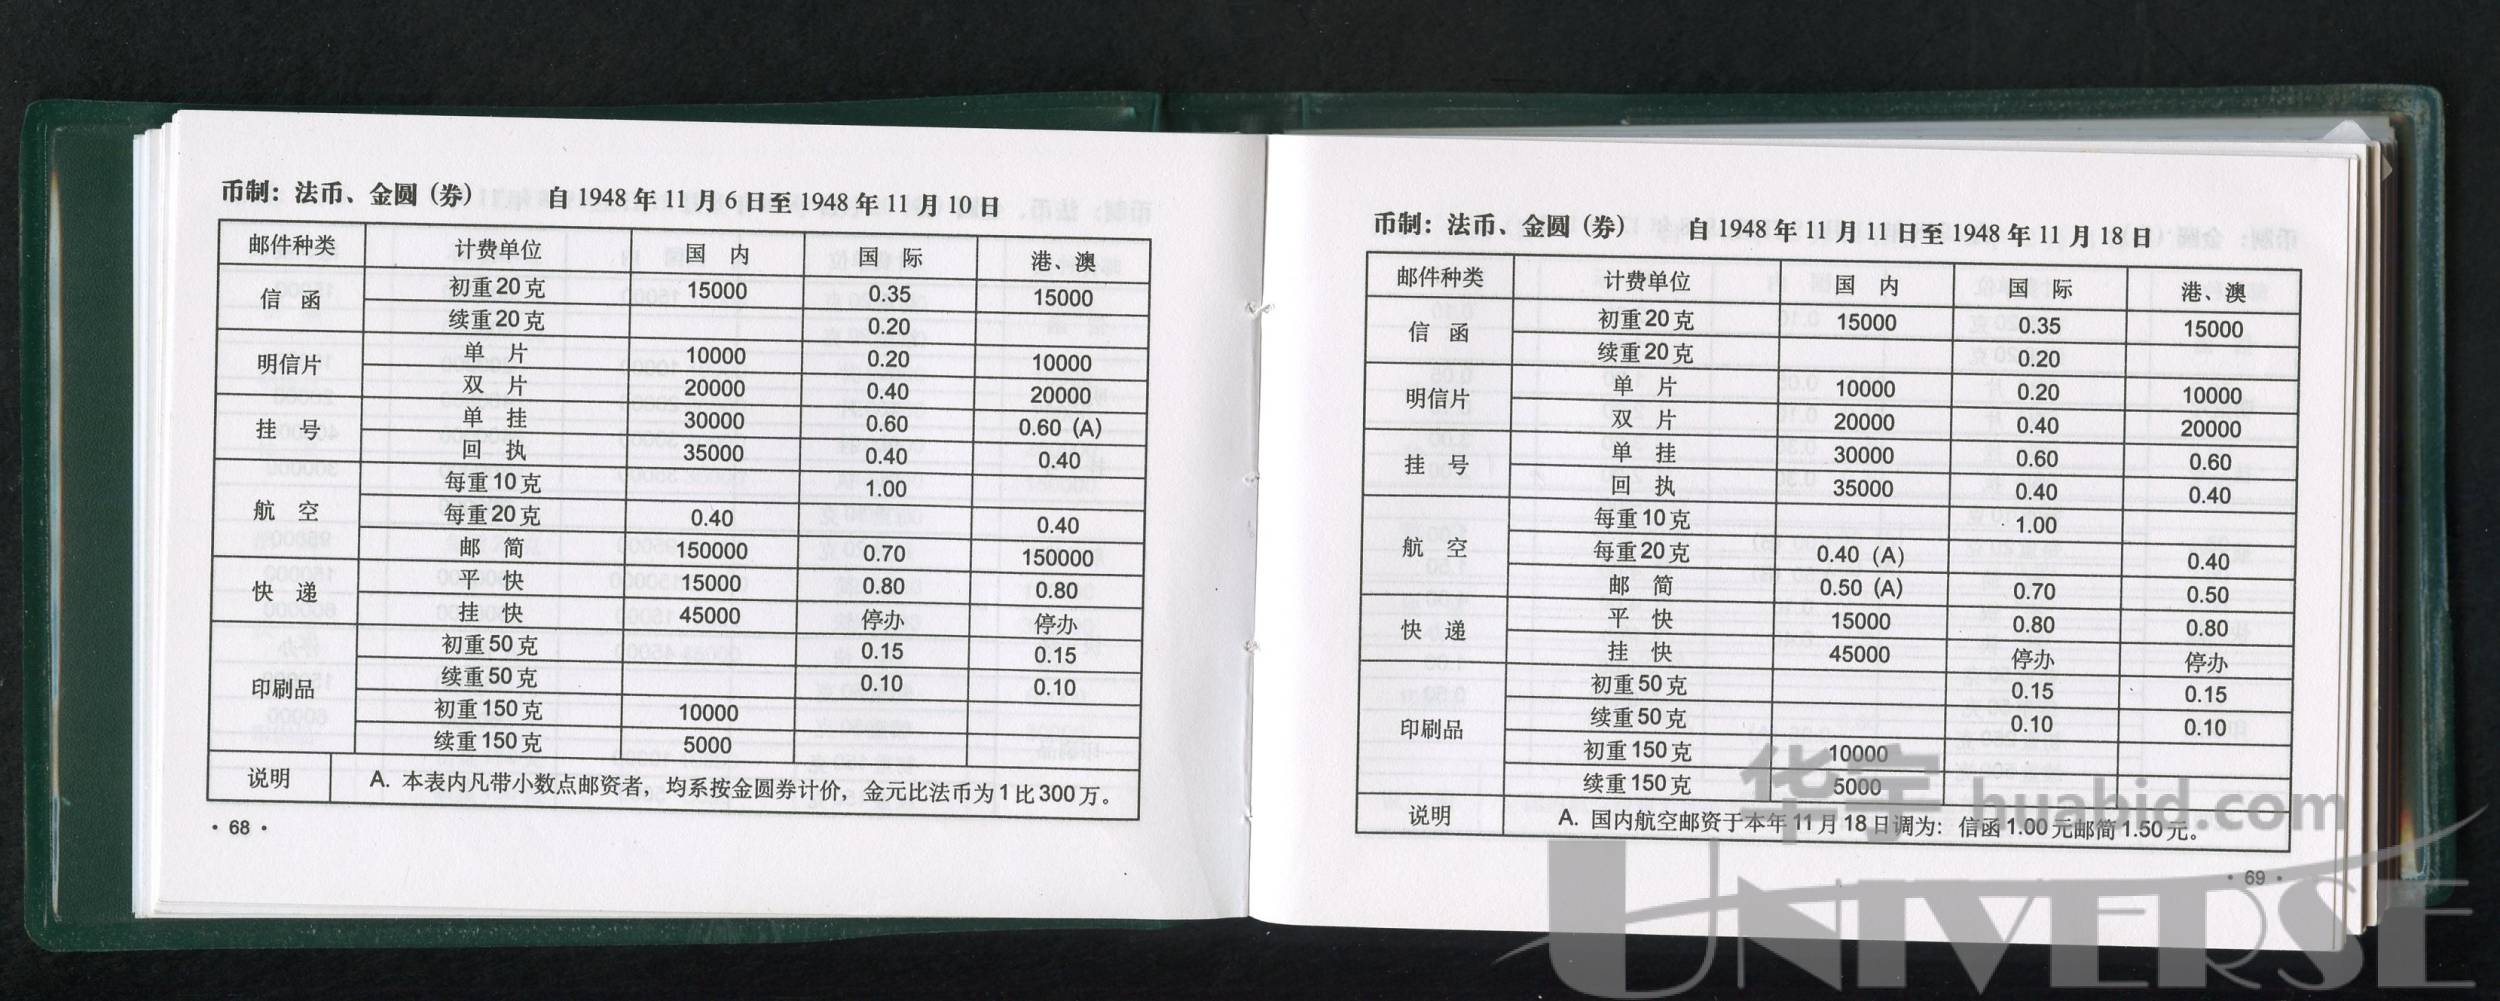 币制：法币、金圆（券） 自1948年11月6日至1948年11月10日
邮件种类 计费单位 国 内 国 际 港、澳
信 函 初重20克 15000 0.35 15000
续重20克 0.20
明信片 单 片 10000 0.20 10000
双 片 20000 0.40 20000
挂 号 单 挂 30000 0.60 0.60（A）
回 执 35000 0.40 0.40
航 空 每重10克 1.00
每重20克 0.40 0.40
邮 简 150000 0.70 150000
快 递 平 快 15000 0.80 0.80
挂 快 45000 停办 停办
印刷品 初重50克 0.15 0.15
续重50克 0.10 0.10
初重150克 10000
续重150克 5000
说明 A. 本表内凡带小数点邮资者，均系按金圆券计价，金元比法币为1比300万。
· 68 ·
币制：法币、金圆（券） 自1948年11月11日至1948年11月18日
邮件种类 计费单位 国 内 国 际 港、澳
信 函 初重20克 15000 0.35 15000
续重20克 0.20
明信片 单 片 10000 0.20 10000
双 片 20000 0.40 20000
挂 号 单 挂 30000 0.60 0.60
回 执 35000 0.40 0.40
航 空 每重10克 1.00
每重20克 0.40（A） 0.40
邮 简 0.50（A） 0.70 0.50
快 递 平 快 15000 0.80 0.80
挂 快 45000 停办 停办
印刷品 初重50克 0.15 0.15
续重50克 0.10 0.10
初重150克 10000
续重150克 5000
说明 A. 国内航空邮资于本年11月18日调为：信函1.00元邮简1.50元。
· 69 ·
华宇 huabid.com
UNIVERSE